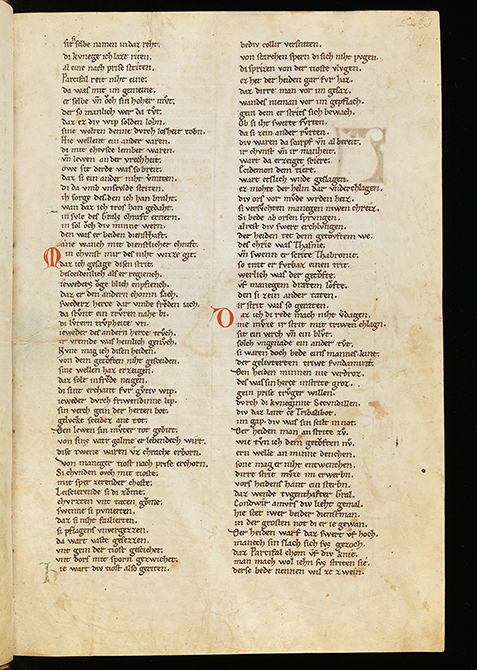 sit selbe namen in daz reht.
di kunege ich laze riten.
al eine nach prise striten.
Parcifal reit niht eine;
da was mit im gemeine.
er selbe vn̄ ovch sin hoher mvͦt.
der so manlich wer da tvͦt.
daz ez div wip solden loben.
sine welten denne dvrch losheit toben.
Hie wellent ein ander varen.
di mit chvsce lember waren.
vn̄ lewen an der vrechheit.
owe sit div erde was so breit.
daz si ein ander niht vmiten.
di da vmb vnscvlde striten.
ih sorge des den ich han braht.
wan daz ich tros han gedaht.
in svle des Grals chraft ernern.
in sol ovch div minne wern.
den was er beiden diensthaft.
ane wanch mit dienstlicher chraft.
Min chvnst mir des niht witze git.
daz ich gesage disen strit.
besceidenlich als er regiench.
ieweders ovge blich enpfiench.
daz er den andern chomen sach.
sweders herze drvmbe frevden iach.
da stvnt ein trvren nahe bi.
di lvtern trvpheite vri.
ieweder des andern herze trvch.
ir vremde was heinlich genvch.
Nvne mag ich disen heiden.
von dem getovften niht gesceiden.
sine wellen haz erzeigen.
daz solt in frevde neigen.
di sint erchant fvr gvtiv wip.
ieweder dvrch frivndinne lip.
sin verch gein der herten bot.
gelvcke sceidez ane tot.
Den lewen sin mvter tot gebirt.
von sins vater galme er lebendech wirt.
dise zwene waren vz chrache erborn.
von maneger tiost nach prise erchorn.
Si chvnden ovch mit tioste.
mit sper zerender choste.
Leiscierende si di zovme.
chvrzten vnt taten govme.
swenne si pvnierten.
daz si niht failierten.
si pflagens vnvergezzen.
da wart vaste gesezzen.
vnt gein der tiost gescichet.
vnt dors mit sporn gezwichet.
Hie wart div tiost also geriten.
bediv collir versniten.
von starchen spern di sich niht pvgen.
di sprizen von der tioste vlvgen.
ez het der heiden gar fvr haz.
daz dirre man vor im gesaz.
wandes nieman vor im gepflach.
gein dem er strites sich bewach.
Ob si iht swerte fvrten.
da si zein ander rvrten.
div waren da scarpf vn̄ al bereit.
ir chvnst vn̄ ir manheit.
wart da erzeiget sciere.
Ecidemon dem tiere.
wart etslich wnde geslagen.
ez mohte der helm dar vnder chlagen.
div ors vor mvde wrden heiz.
si versvchten manegen niwen chreiz.
Si bede ab orsen sprvngen.
alrest div swert erchlvngen.
der heiden tet dem getovftem we.
des chrie was Thasme.
vn̄ swenn er scrite Thabronit.
so trat er fvrbaz einen trit.
werlich was der getovfte.
vf manegem dræten lovfte.
den si zein ander taten.
ir strit was so geraten.
Daz ich di rede mach niht verdagen.
ine mvze ir strit mit triwen chlagen.
sit ein verch vn̄ ein blvt.
solch vngenade ein ander tvt.
si waren doch bede eins mannes kint.
der gelvterten triwe fvndamint.
Den heiden minnen nie verdroz.
des was sin herze in strite groz.
gein prise trvger willen.
dvrch di kvneginne Secvndillen.
div daz lant ce Tribalibot.
im gap. div was sin scilt in not.
Der heiden man an strite zv.
wie tvn ich dem getovften nv.
ern welle an minne denchen.
sone mag er niht entwenchen.
dirre strit mvze im erwerben.
vor des heidens hant ein sterben.
daz wende tvgenthafter Gral.
Condwir amvrs div lieht gemal.
hie stet iwer beider dienstman.
in der grosten not di er ie gewan.
Der heiden warf daz swert vf hoch.
manech sin slach sich svs gezoch.
daz Parcifal chom vf div knie.
man mach wol iehn svs striten sie.
der se bede nennen wil ze zwein.